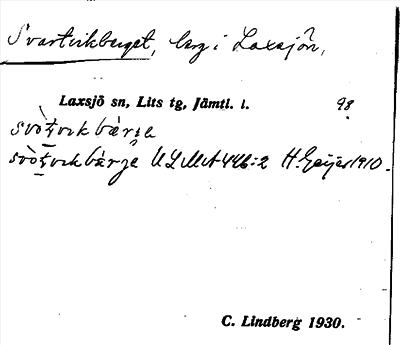 Svartvikberget, berg i Laxsjön,
Laxsjö sn, Lits tg, Jämtl. l. 98
svòt̲vikbárje
svòt̲vikbárje ULMA 446:2 H. Geijer 1910.
C. Lindberg 1930.